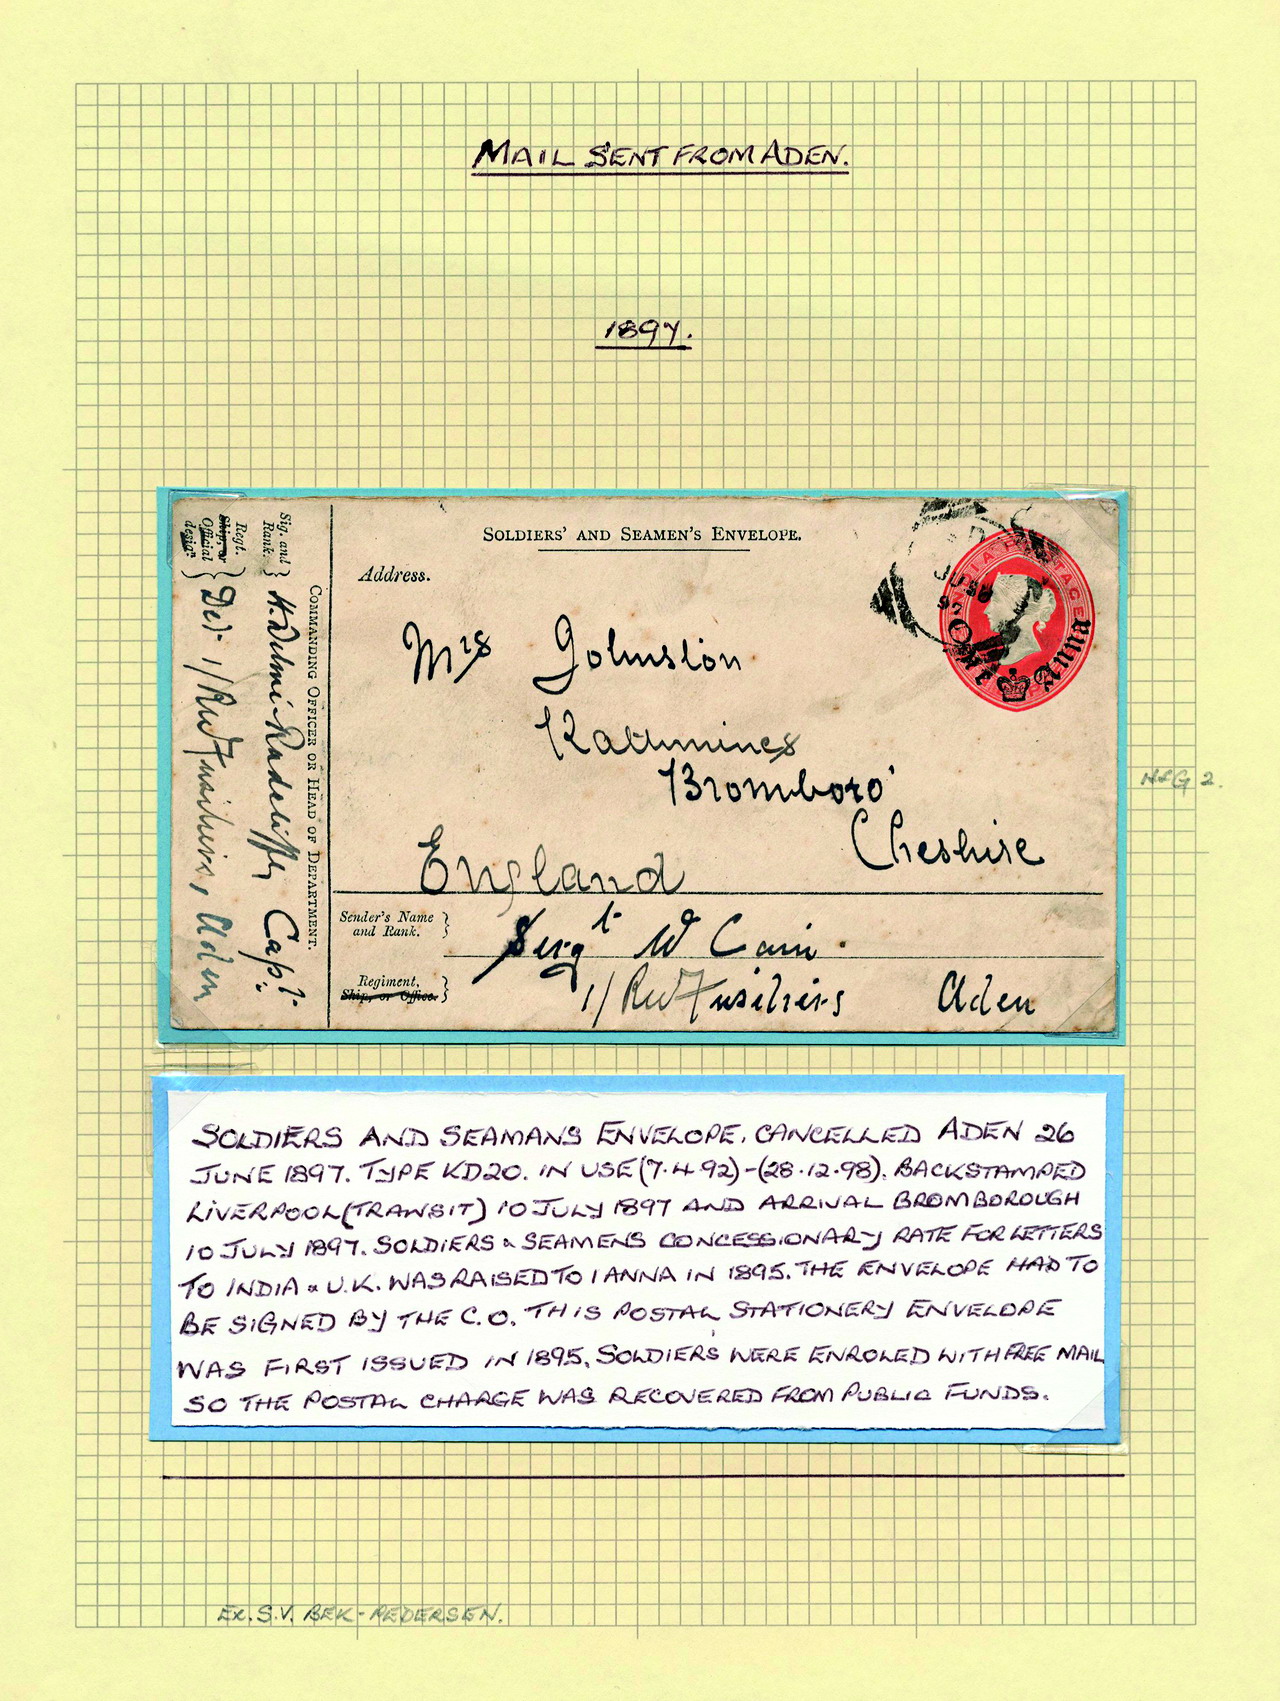 MAIL SENT FROM ADEN.
1897.
SOLDIERS' AND SEAMEN'S ENVELOPE.
Address.
INDIA POSTAGE
One Anna
Mrs Johnston
Rathmines
Bromboro'
Cheshire
England
Sender's Name
and Rank.
Sergt W Cain.
Regiment,
Ship, or Office.
1/RW Fusiliers Aden
COMMANDING OFFICER OR HEAD OF DEPARTMENT.
Sig. and
Rank.
H. Delmé-Radcliffe Capt.
Regt.
Ship, or
Official
desig.n
Det 1/RW Fusiliers, Aden
H&G 2.
SOLDIERS AND SEAMANS ENVELOPE. CANCELLED ADEN 26
JUNE 1897. TYPE KD20. IN USE (7.4.92)-(28.12.98). BACKSTAMPED
LIVERPOOL (TRANSIT) 10 JULY 1897 AND ARRIVAL BROMBOROUGH
10 JULY 1897. SOLDIERS & SEAMENS CONCESSIONARY RATE FOR LETTERS
TO INDIA & U.K. WAS RAISED TO 1 ANNA IN 1895. THE ENVELOPE HAD TO
BE SIGNED BY THE C.O. THIS POSTAL STATIONERY ENVELOPE
WAS FIRST ISSUED IN 1895. SOLDIERS WERE ENROLED WITH FREE MAIL
SO THE POSTAL CHARGE WAS RECOVERED FROM PUBLIC FUNDS.
EX. S.V. BEK-PEDERSEN.